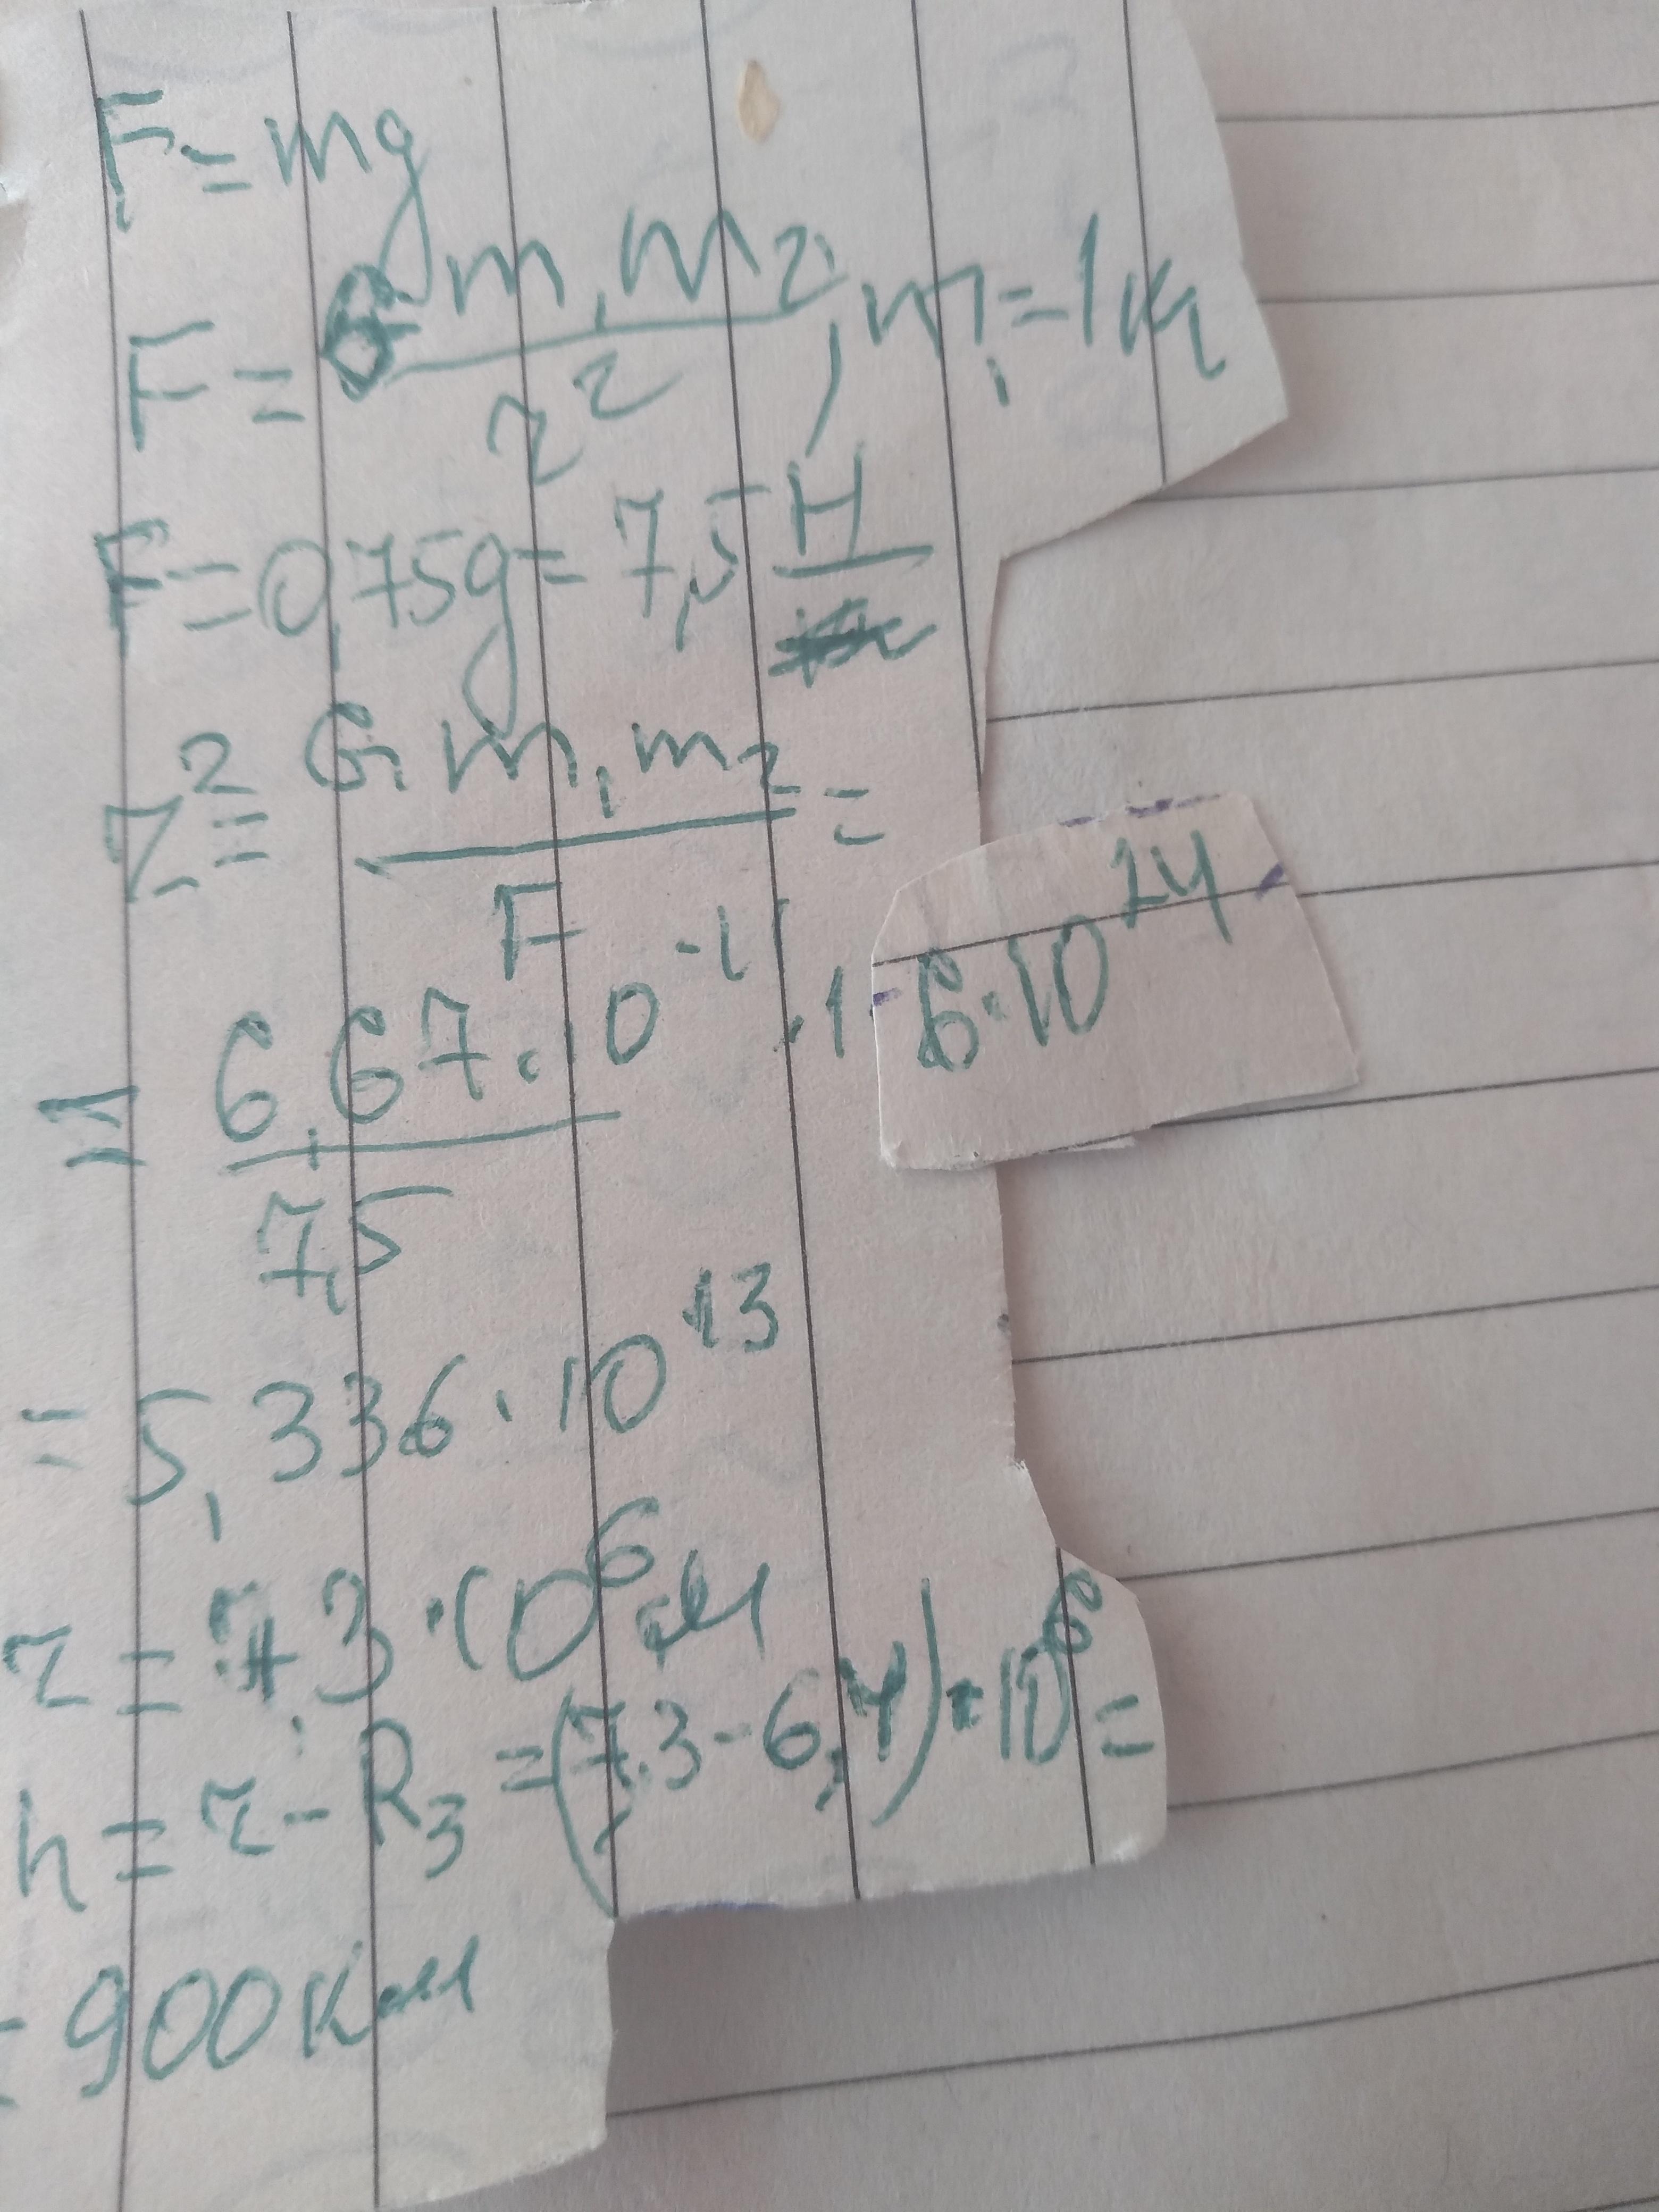 F = mg
F = G m₁ m₂ / r², m₁ = 1 кг
F = 0,75g = 7,5 Н
r² = G m₁ m₂ / F =
= 6,67 · 10⁻¹¹ · 1 · 6 · 10²⁴ / 7,5
= 5,336 · 10¹³
r = 7,3 · 10⁶ м
h = r - R₃ = (7,3 - 6,4) · 10⁶ =
= 900 км